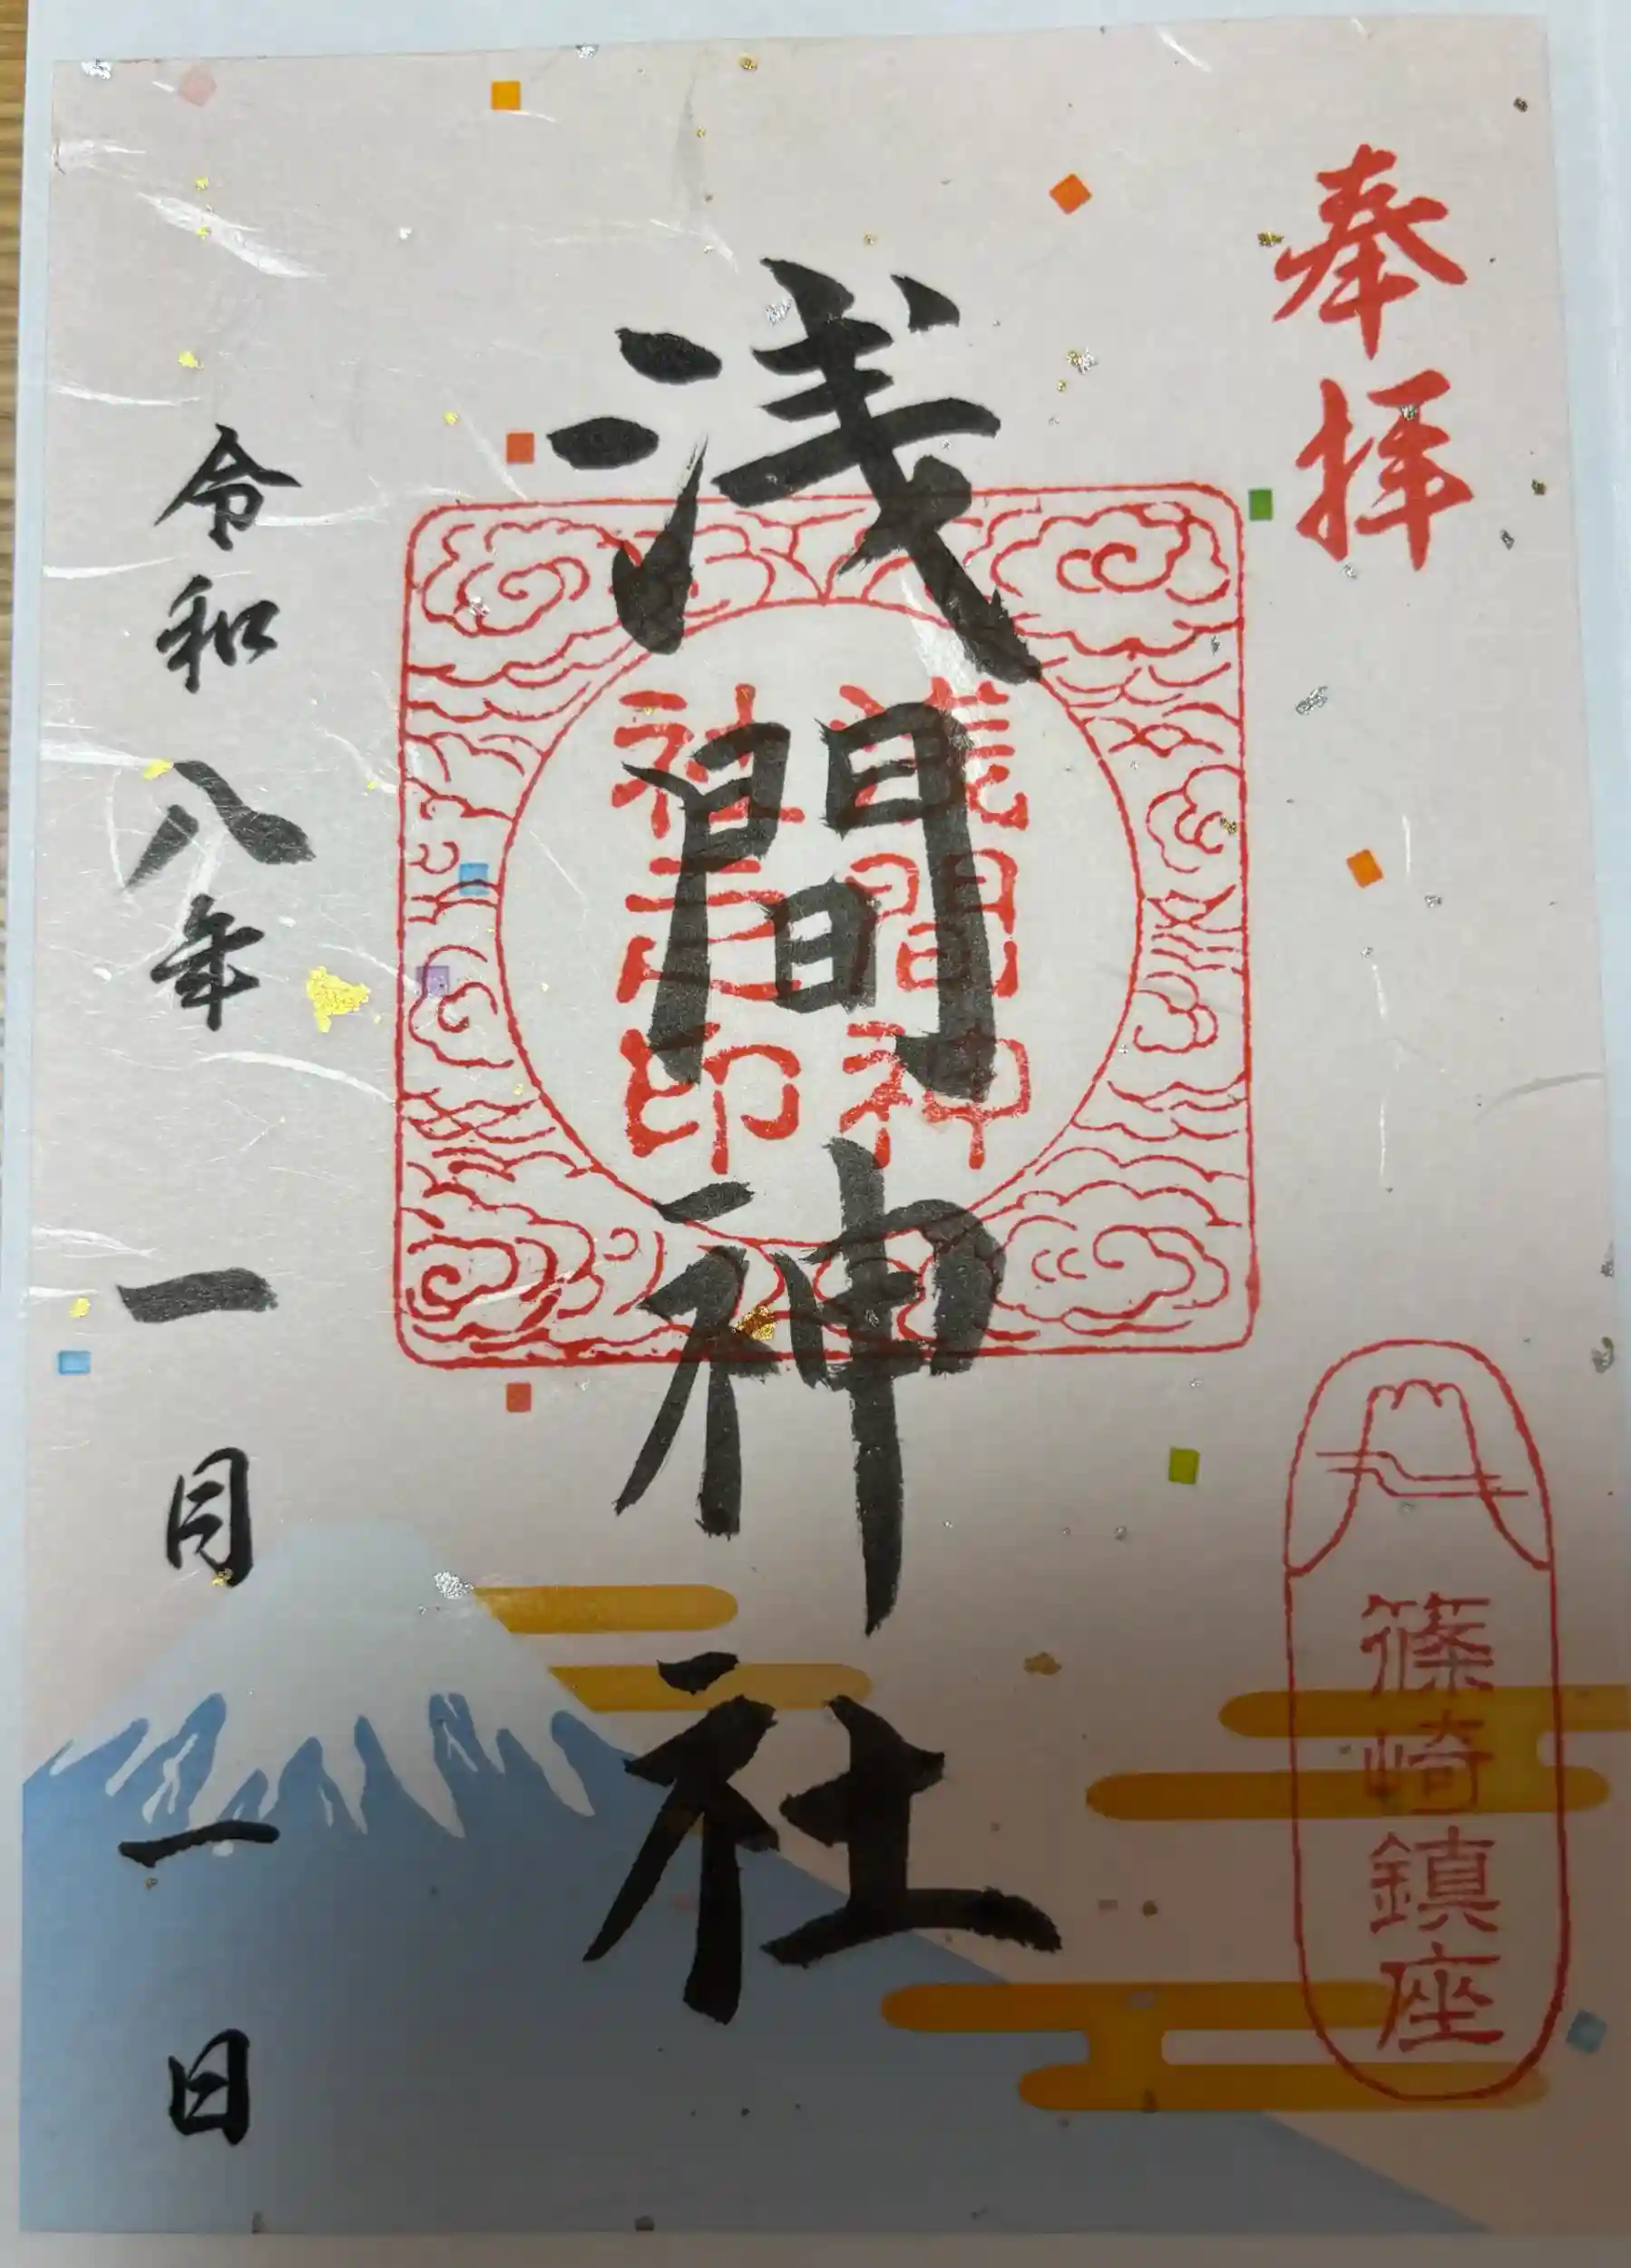 奉拝
浅間神社
淺間神
社之印
篠崎鎮座
令和八年一月一日